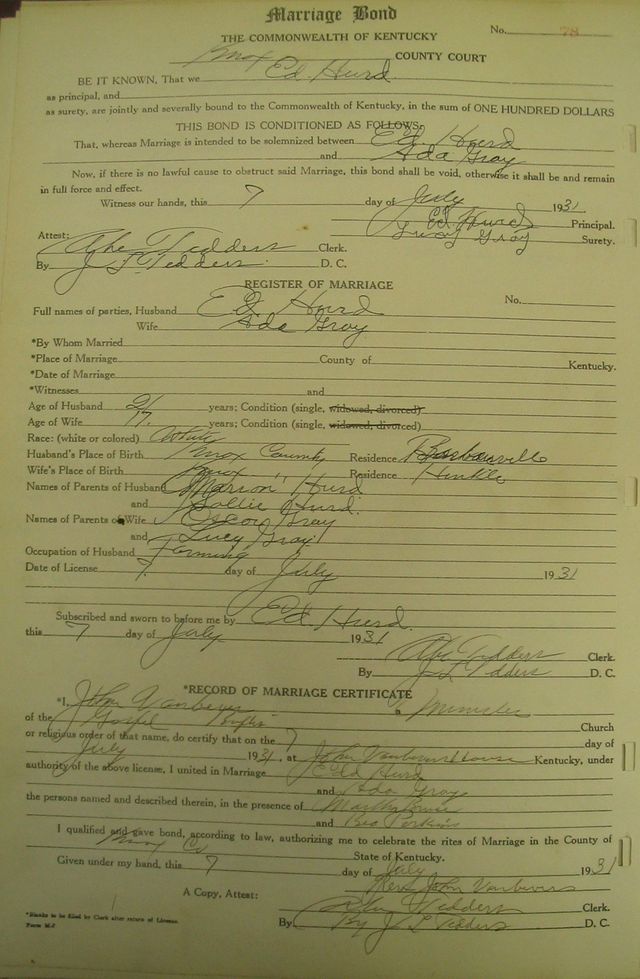 Marriage Bond
THE COMMONWEALTH OF KENTUCKY
No. 78
Knox COUNTY COURT
BE IT KNOWN, That we Ed. Hurd.
as principal, and
as surety, are jointly and severally bound to the Commonwealth of Kentucky, in the sum of ONE HUNDRED DOLLARS
THIS BOND IS CONDITIONED AS FOLLOWS:
That, whereas Marriage is intended to be solemnized between Ed. Hurd
and Ada Gray
Now, if there is no lawful cause to obstruct said Marriage, this bond shall be void, otherwise it shall be and remain
in full force and effect.
Witness our hands, this 7 day of July 1931
Ed Hurd Principal.
Gray Surety.
Attest:
Abe Tedders Clerk.
By J. L. Tedders. D. C.
REGISTER OF MARRIAGE
No.
Full names of parties, Husband Ed Hurd
Wife Ada Gray
*By Whom Married
*Place of Marriage County of Kentucky.
*Date of Marriage
*Witnesses and
Age of Husband 21 years; Condition (single, widowed, divorced)
Age of Wife 17. years; Condition (single, widowed, divorced)
Race: (white or colored) White
Husband's Place of Birth Knox County Residence Barbourville
Wife's Place of Birth Knox " Residence Hinkle
Names of Parents of Husband Marion Hurd
and Sollie Hurd.
Names of Parents of Wife Oscar Gray
and Lucy Gray.
Occupation of Husband Farming
Date of License 7. day of July 1931
Subscribed and sworn to before me by Ed. Hurd.
this 7 day of July 1931
Abe Tedders Clerk.
By J L Tedders D. C.
*RECORD OF MARRIAGE CERTIFICATE
*I, John Vanbever a Minister
of the Gospel Baptis Church
or religious order of that name, do certify that on the 7 day of
July 1931, at John Vanbevers House Kentucky, under
authority of the above license, I united in Marriage Ed Hurd
and Ada Gray
the persons named and described therein, in the presence of Martha
and Perkins
I qualified and gave bond, according to law, authorizing me to celebrate the rites of Marriage in the County of
Knox Co State of Kentucky.
Given under my hand, this 7 day of July 1931
Rev. John Vanbevers
A Copy, Attest: Abe Tedders Clerk.
By: By J L Tedders D. C.
*Blanks to be filled by Clerk after return of License.
Form M-2